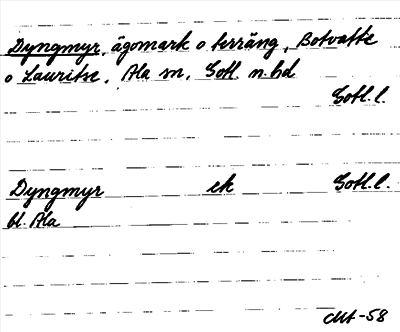 Dyngmyr, ägomark o terräng, Botvatte
o Lauritse, Ala sn, Gotl. n. hd
Gotl. l.
Dyngmyr ek Gotl. l.
bl. Ala
CMA-58